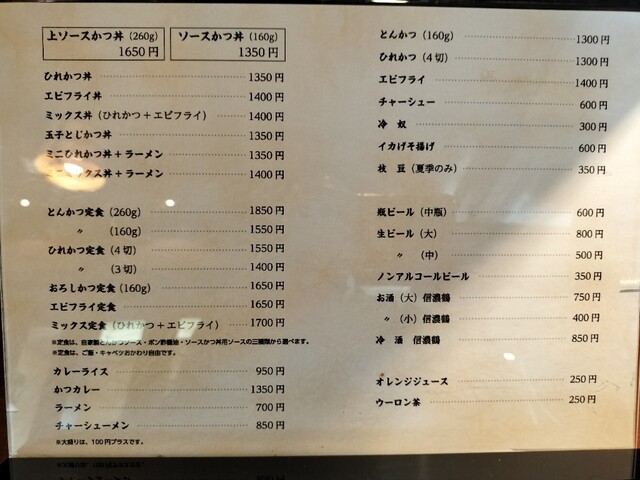 上ソースかつ丼（260g） 1650円
ソースかつ丼（160g） 1350円
ひれかつ丼 1350円
エビフライ丼 1400円
ミックス丼（ひれかつ＋エビフライ） 1400円
玉子とじかつ丼 1350円
ミニひれかつ丼＋ラーメン 1350円
ミニミックス丼＋ラーメン 1400円
とんかつ定食（260g） 1850円
〃 （160g） 1550円
ひれかつ定食（4切） 1550円
〃 （3切） 1400円
おろしかつ定食（160g） 1650円
エビフライ定食 1650円
ミックス定食（ひれかつ＋エビフライ） 1700円
※定食は、自家製とんかつソース・ポン酢醤油・ソースかつ丼用ソースの三種類から選べます。
※定食は、ご飯・キャベツおかわり自由です。
カレーライス 950円
かつカレー 1350円
ラーメン 700円
チャーシューメン 850円
※大盛りは、100円プラスです。
とんかつ（160g） 1300円
ひれかつ（4切） 1300円
エビフライ 1400円
チャーシュー 600円
冷 奴 300円
イカげそ揚げ 600円
枝 豆（夏季のみ） 350円
瓶ビール（中瓶） 600円
生ビール（大） 800円
〃 （中） 500円
ノンアルコールビール 350円
お酒（大）信濃鶴 750円
〃（小）信濃鶴 400円
冷 酒 信濃鶴 850円
オレンジジュース 250円
ウーロン茶 250円